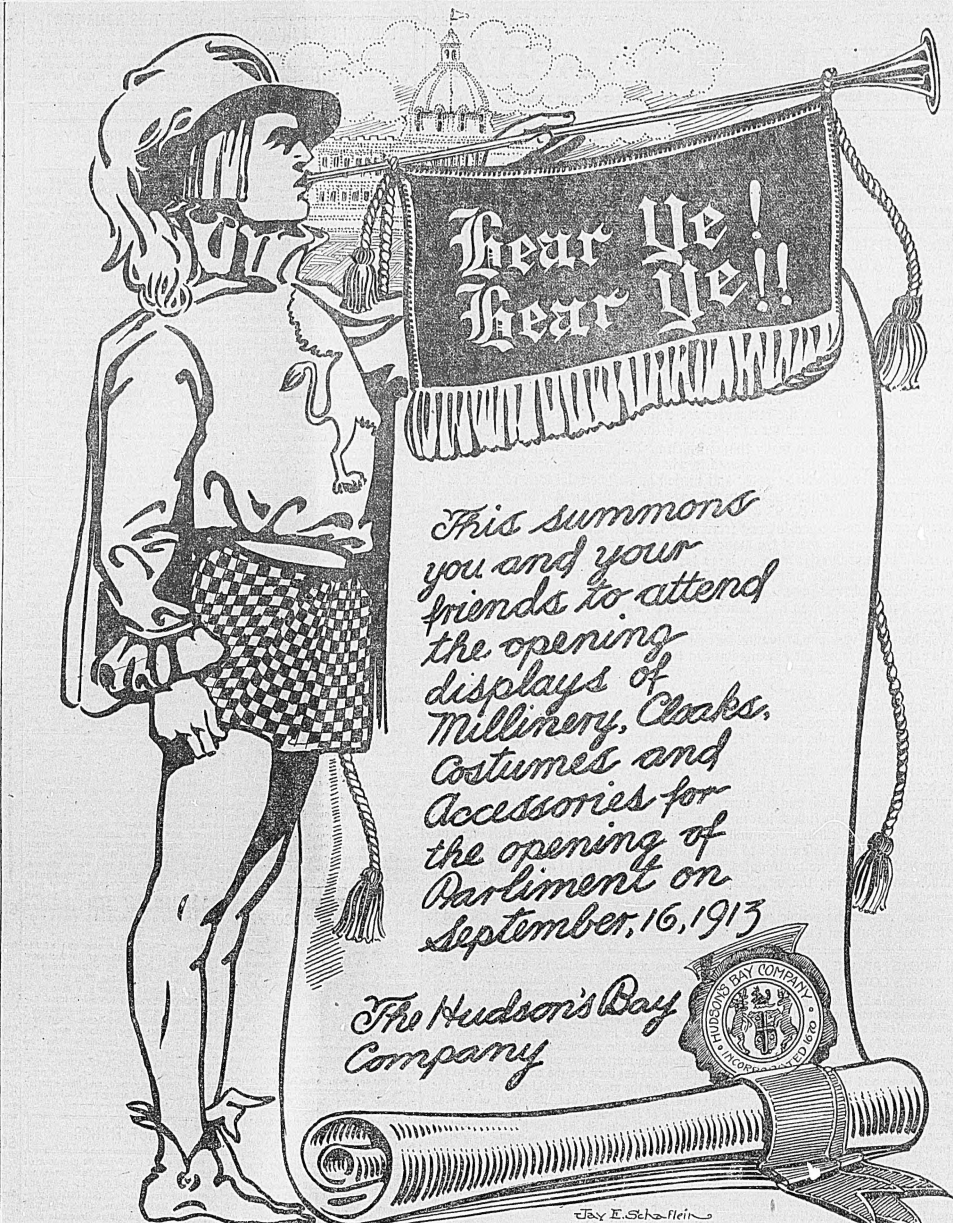 Hear Ye!
Hear Ye!!
This summons
you and your
friends to attend
the opening
displays of
Millinery, Cloaks,
Costumes and
Accessories for
the opening of
Parliment on
September, 16, 1913
The Hudson's Bay
Company
HUDSON'S BAY COMPANY
INCORPORATED 1670
Jay E. Schaflein